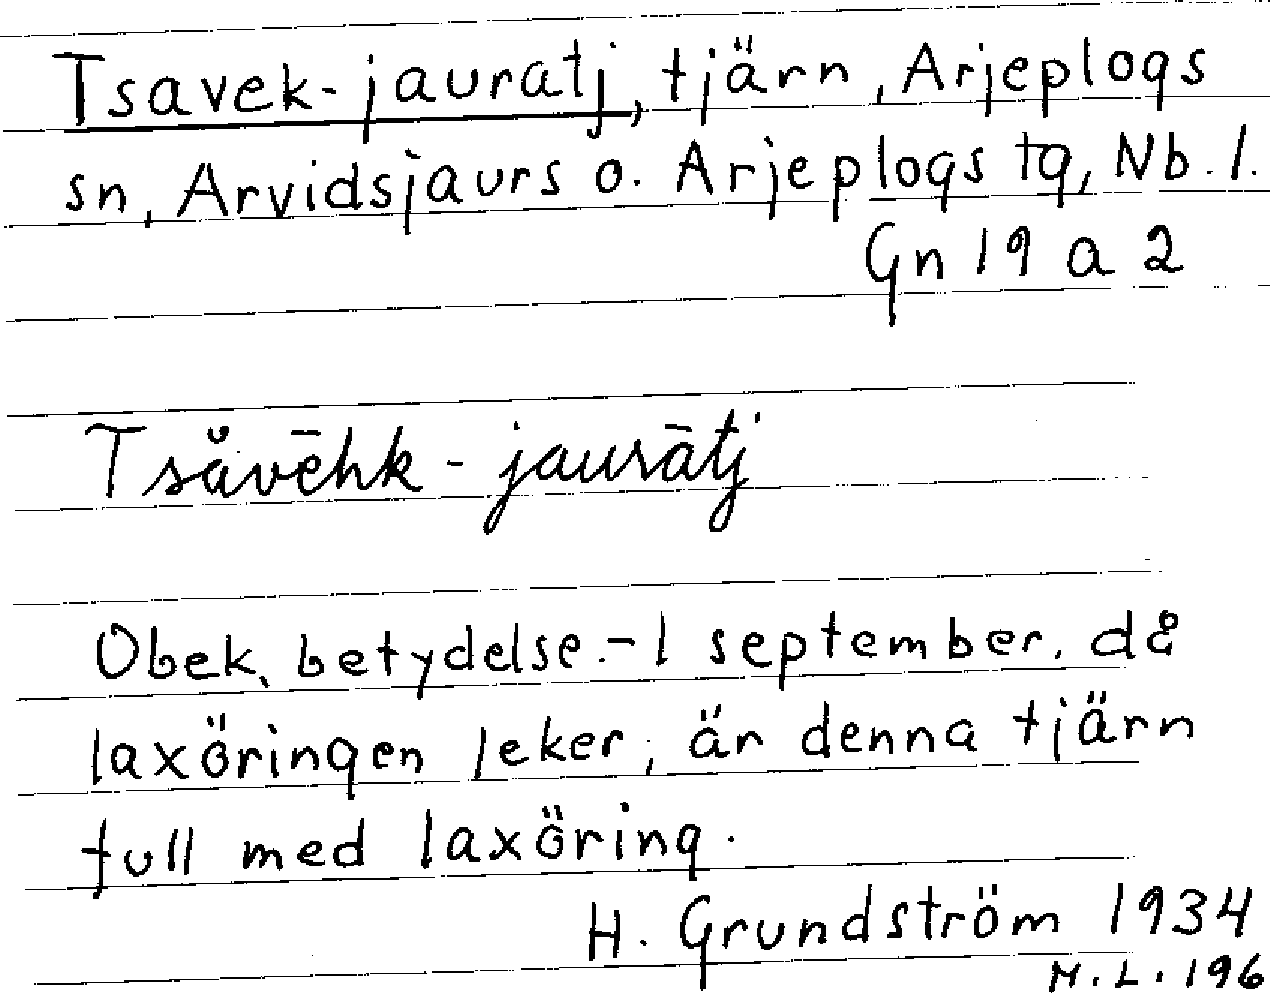 Tsavek-jauratj, tjärn, Arjeplogs
sn, Arvidsjaurs o. Arjeplogs tg, Nb. l.
Gn 19 a 2
Tsåvēhk - jaurātj
Obek. betydelse.- I september, då
laxöringen leker, är denna tjärn
full med laxöring.
H. Grundström 1934
M.L. 196